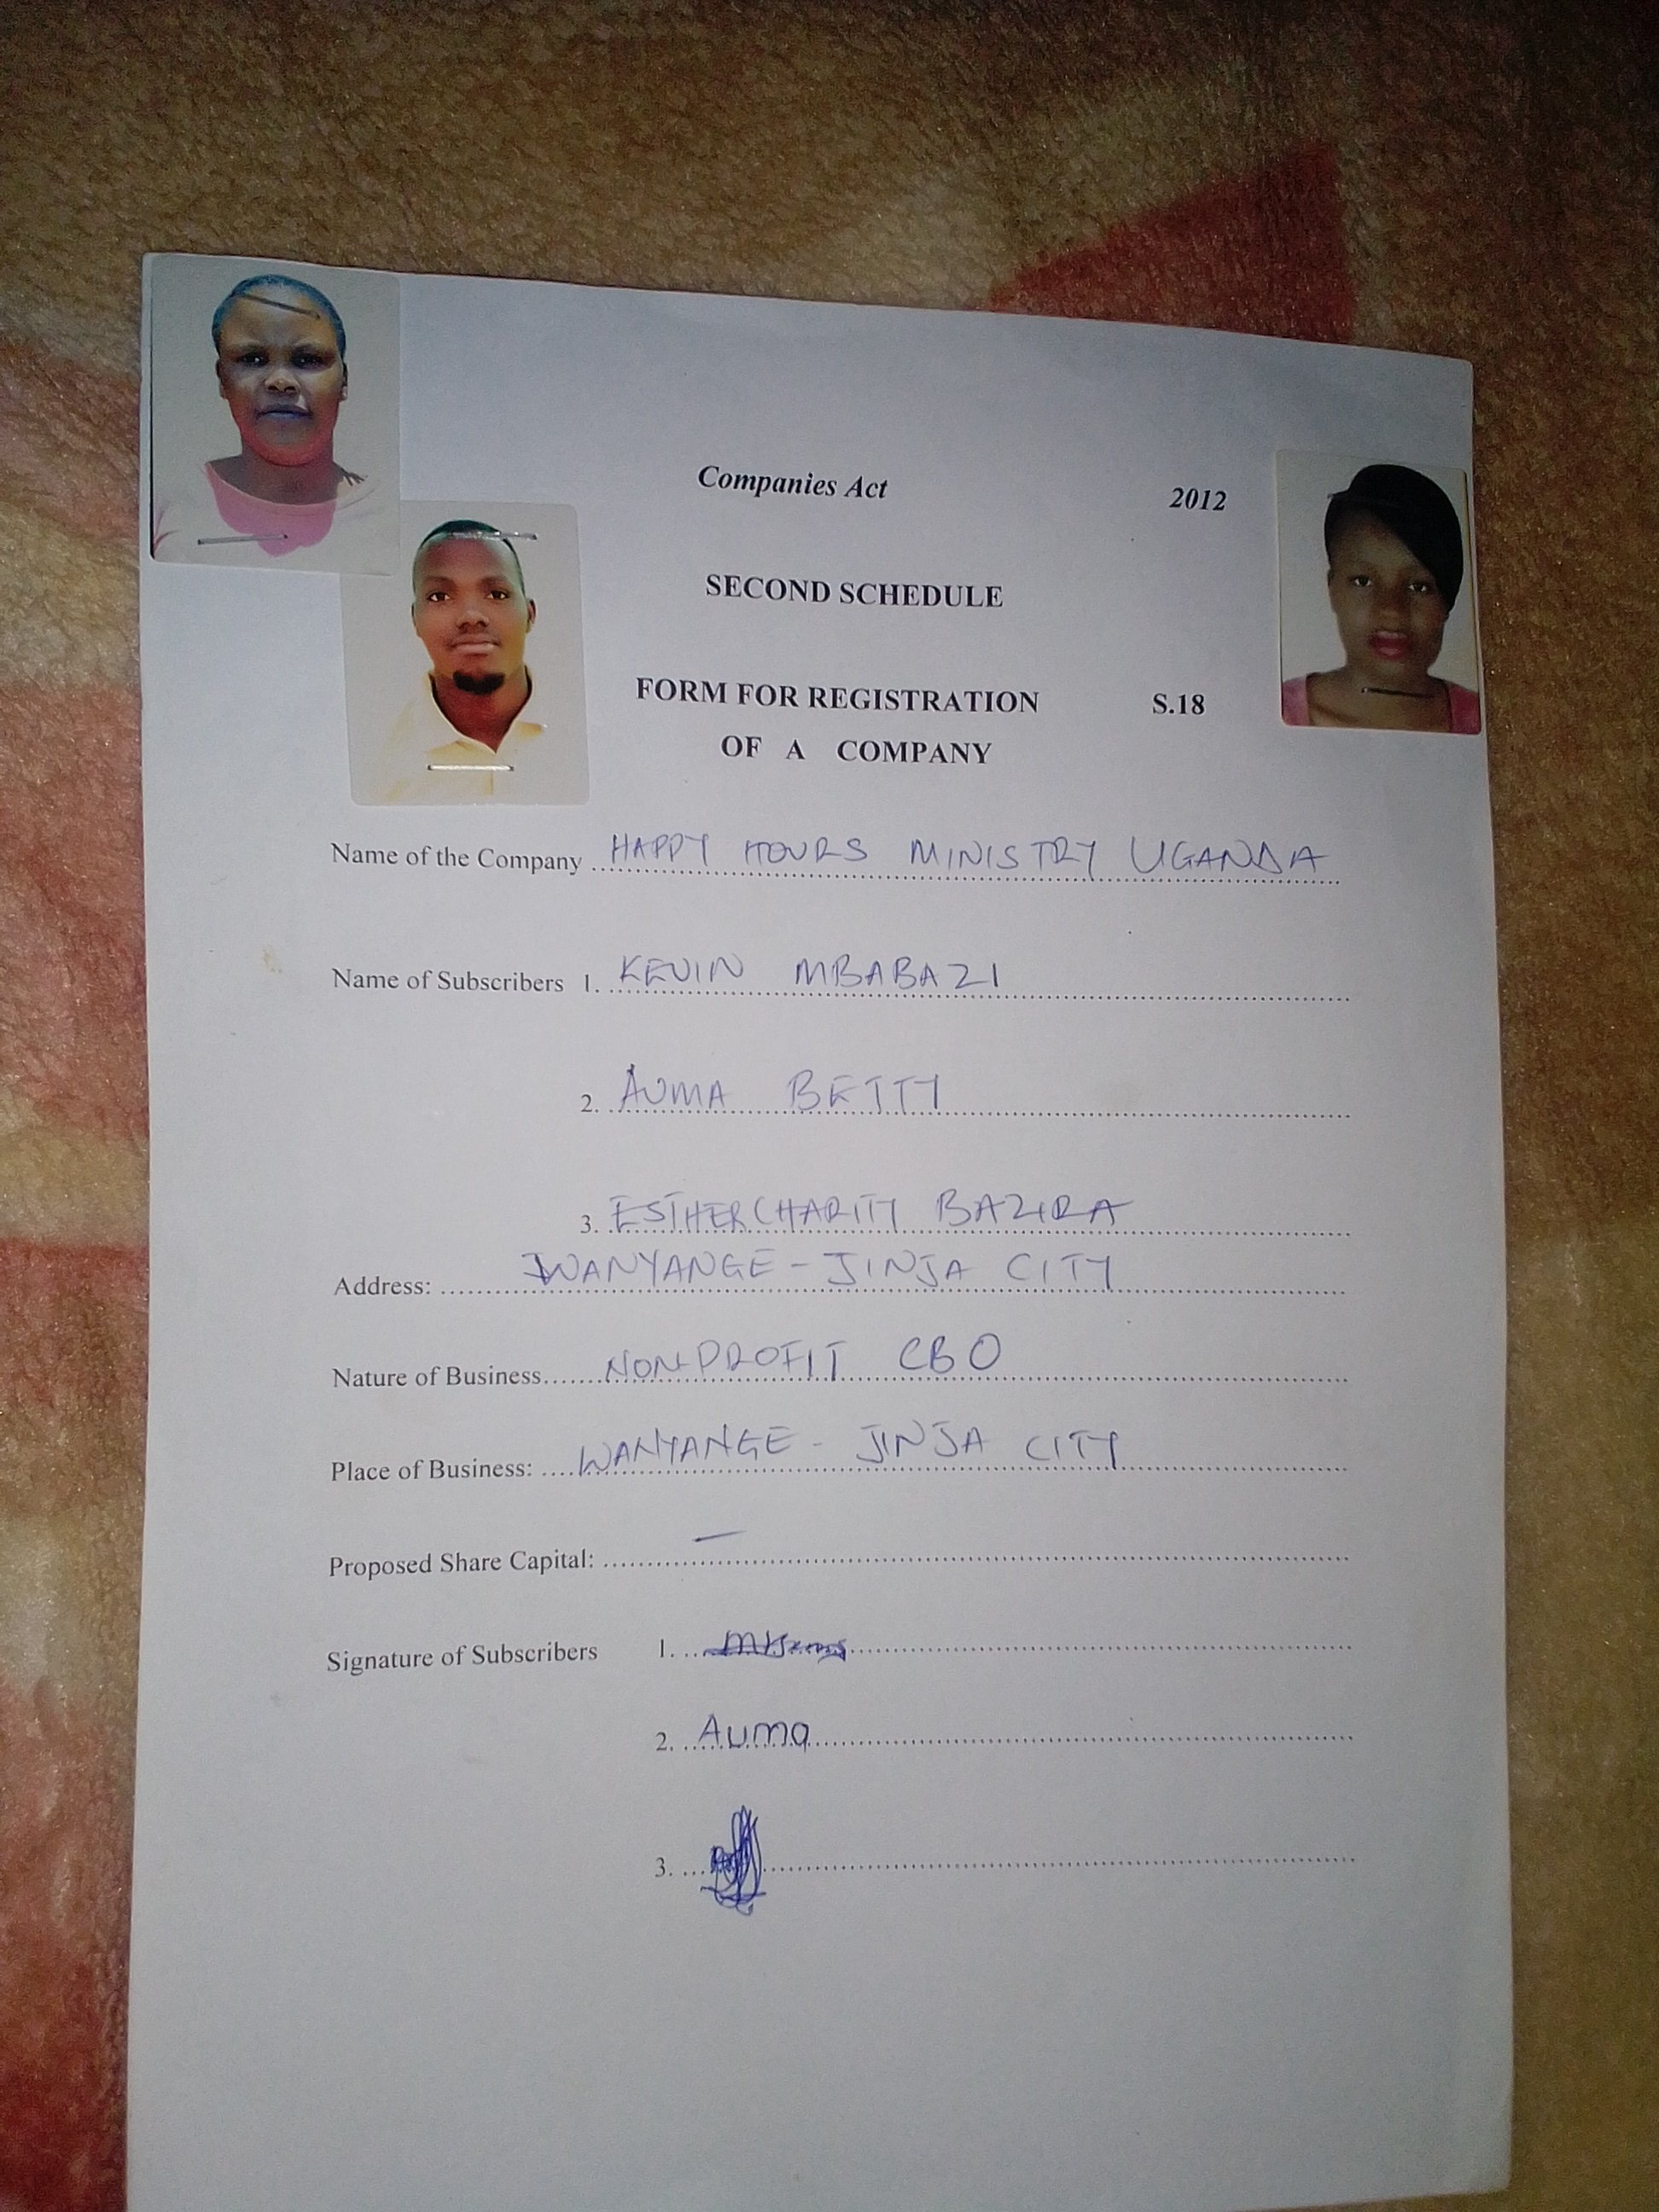 Companies Act 2012
SECOND SCHEDULE
FORM FOR REGISTRATION S.18
OF A COMPANY
Name of the Company HAPPY HOURS MINISTRY UGANDA
Name of Subscribers 1. KEVIN MBABAZI
2. AUMA BETTY
3. ESTHERCHARITY BAZIRA
Address: WANYANGE - JINJA CITY
Nature of Business NON-PROFIT CBO
Place of Business: WANYANGE - JINJA CITY
Proposed Share Capital: —
Signature of Subscribers 1.
2. Auma
3.